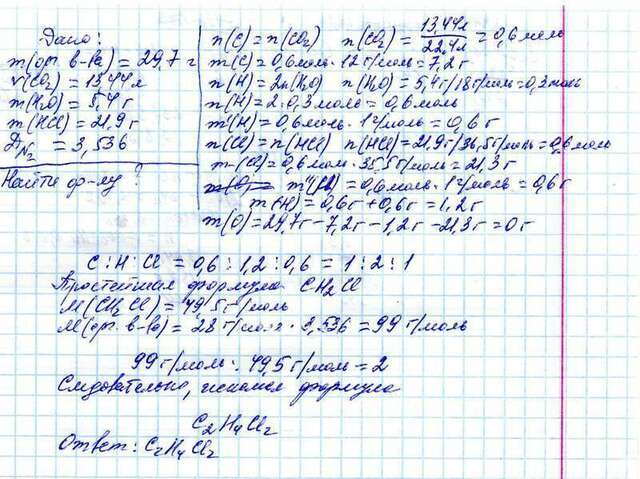 Дано:
m(орг. в-ва) = 29,7 г
V(CO₂) = 13,44 л
m(H₂O) = 5,4 г
m(HCl) = 21,9 г
Д_N₂ = 3,536
Найти ф-лу?
n(C) = n(CO₂) n(CO₂) = 13,44л/22,4л = 0,6 моль
m(C) = 0,6моль · 12 г/моль = 7,2г
n(H) = 2n(H₂O) n(H₂O) = 5,4г/18г/моль = 0,3 моль
n(H) = 2·0,3моль = 0,6 моль
m'(H) = 0,6моль · 1г/моль = 0,6 г
n(Cl) = n(HCl) n(HCl) = 21,9г/36,5г/моль = 0,6 моль
m(Cl) = 0,6моль · 35,5г/моль = 21,3 г
m''(H) = 0,6моль · 1г/моль = 0,6г
m(H) = 0,6г + 0,6г = 1,2г
m(O) = 29,7г - 7,2г - 1,2г - 21,3г = 0г
C : H : Cl = 0,6 : 1,2 : 0,6 = 1 : 2 : 1
Простейшая формула CH₂Cl
M(CH₂Cl) = 49,5г/моль
M(орг. в-ва) = 28 г/моль · 3,536 = 99 г/моль
99 г/моль : 49,5 г/моль = 2
Следовательно, искомая формула
C₂H₄Cl₂
Ответ: C₂H₄Cl₂